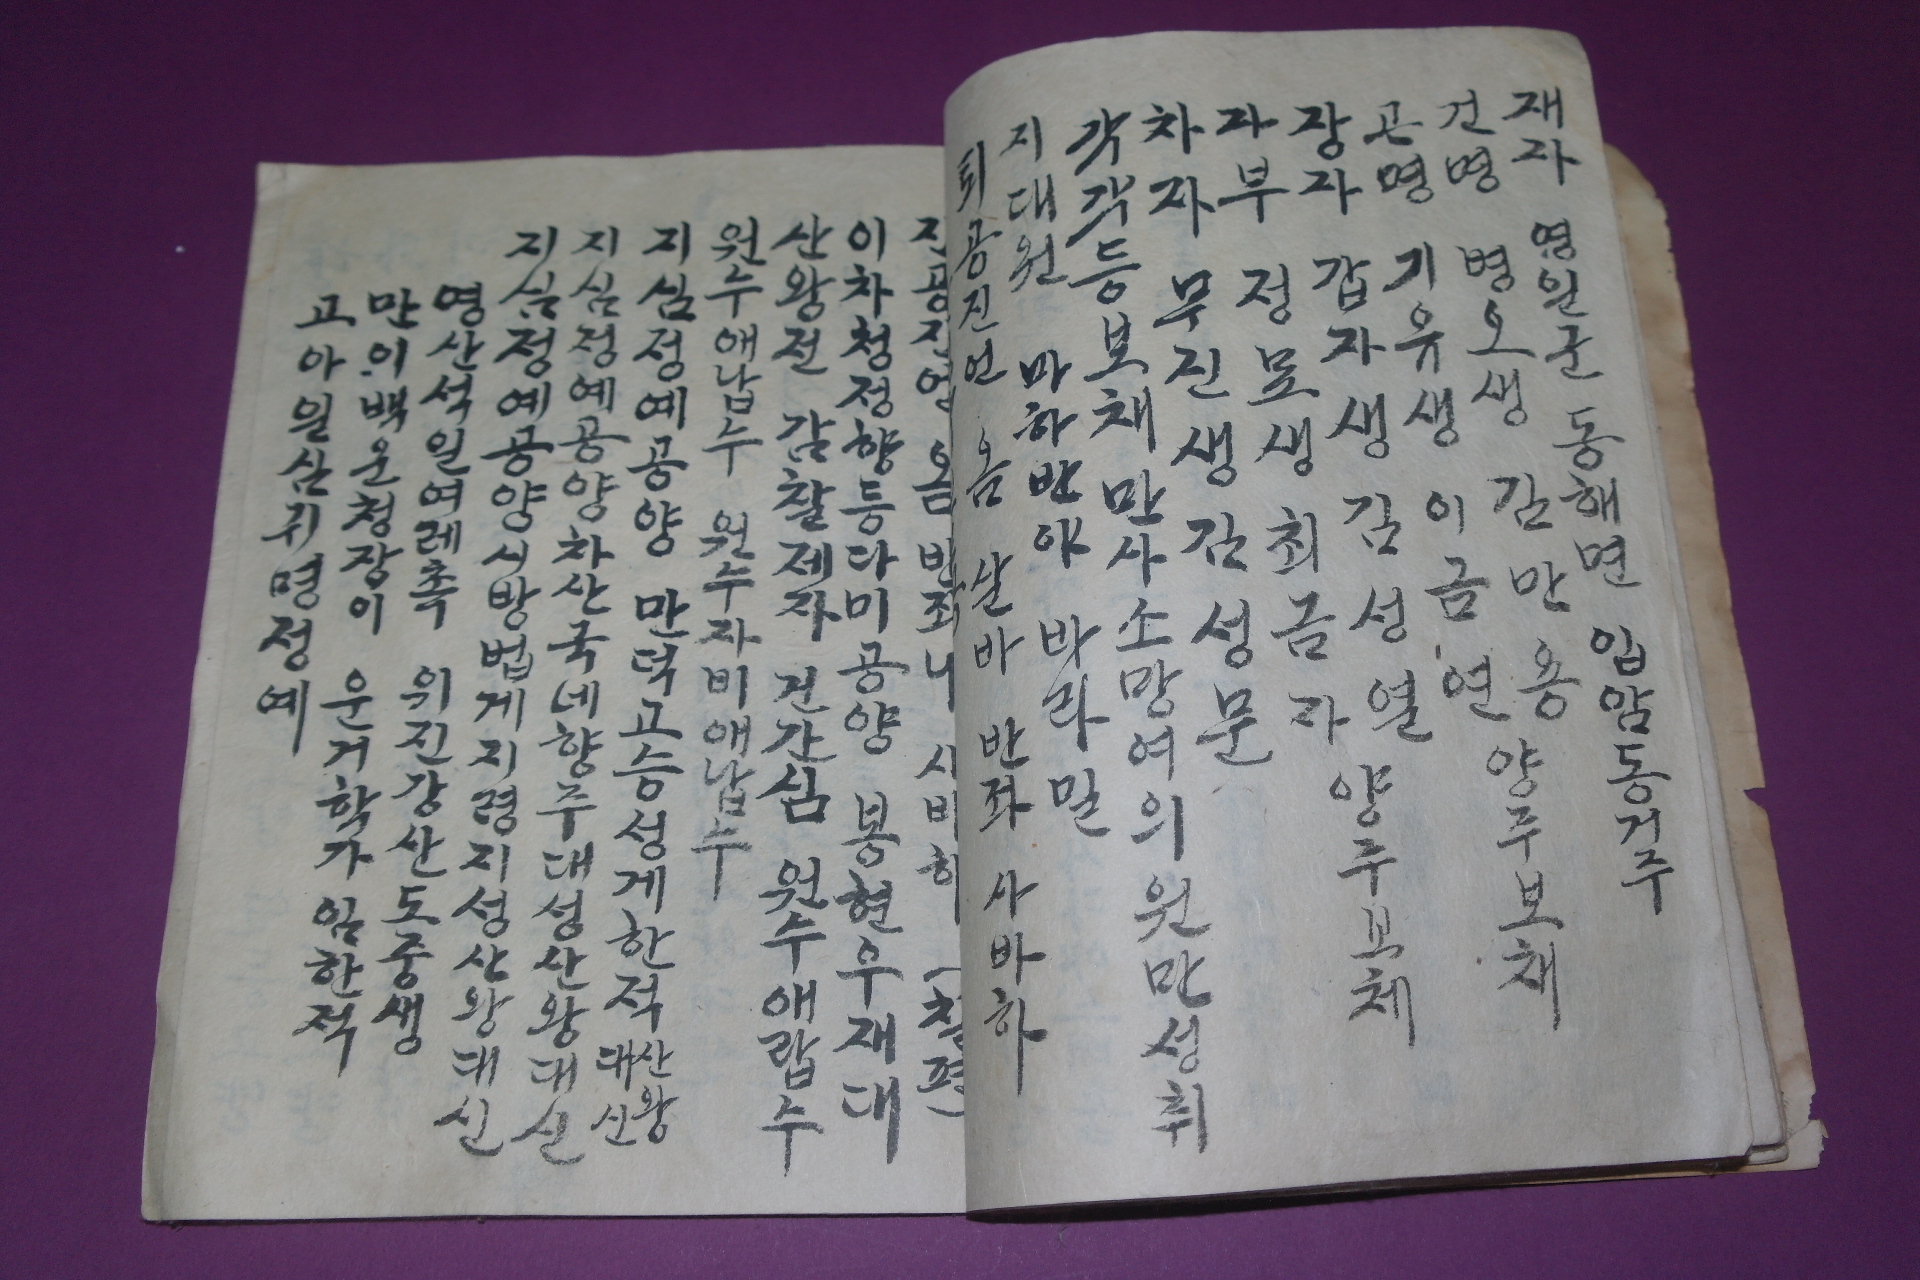 재자 영일군 동해면 임암동거주
건명 병오생 김만용 양주보채
곤명 기유생 이금연
장자 갑자생 김성열 양주보체
자부 정묘생 최금자
차자 무진생 김성문
각각등보채 만사소망여의원만성취
지대원 마하반야 바라밀
퇴공진언 옴 살바 반좌 사바하
진공진언 옴 반좌나 사바하 (칠편)
이차청정향등다미공양 봉현우재대
산왕전 감찰제자 건간심 원수애랍수
원수애납수 원수자비애납수
지심정예공양 만덕고승성게한적 산왕대신
지심정예공양차산국네향주대성산왕대신
지심정예공양시방법게지령지성산왕대신
영산석일여레촉 위진강산도중생
만이백운청장이 운거학가임한적
고아일심귀명정예